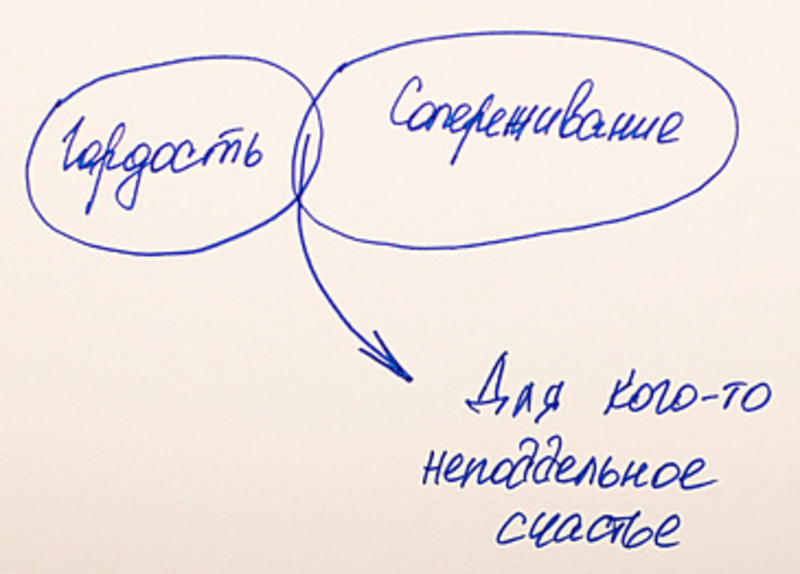 Гордость
Сопереживание
Для кого-то
неподдельное
счастье